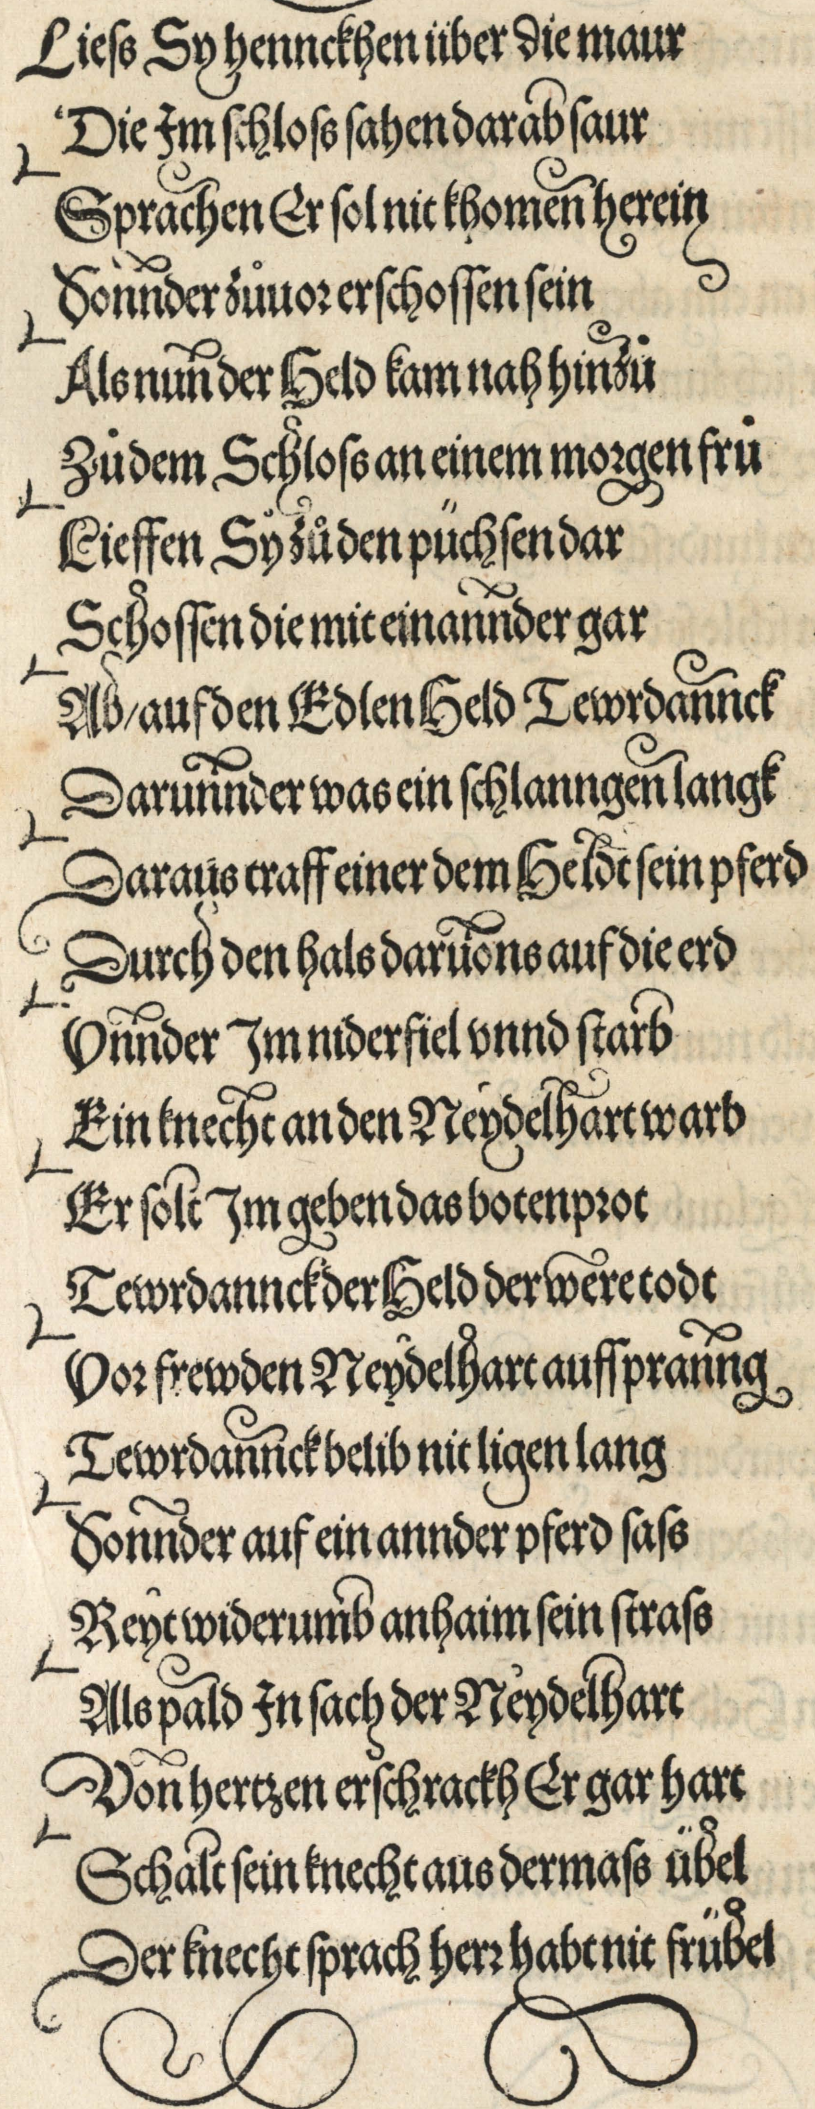 Liess Sy hennckhen über die maur
Die Im schloss sahen darab saur
Sprachen Er sol nit khomen herein
Sonnder zůuor erschossen sein
Als nun der Held kam nah hinzů
Zů dem Schloss an einem morgen frů
Lieffen Sy zů den püchsen dar
Schossen die mit einannder gar
Ab/ auf den Edlen Held Tewrdannck
Darunnder was ein schlanngen langk
Daraus traff einer dem Heldt sein pferd
Durch den hals daruons auf die erd
Vnnder Im niderfiel vnnd starb
Ein knecht an den Neydelhart warb
Er solt Im geben das botenprot
Tewrdannck der Held der were todt
Vor frewden Neydelhart aufspranng
Tewrdannck belib nit ligen lang
Sonnder auf ein annder pferd sass
Reyt widerumb anhaim sein strass
Als pald In sach der Neydelhart
Von hertzen erschrackh Er gar hart
Schalt sein knecht aus dermass übel
Der knecht sprach herr habt nit frübel